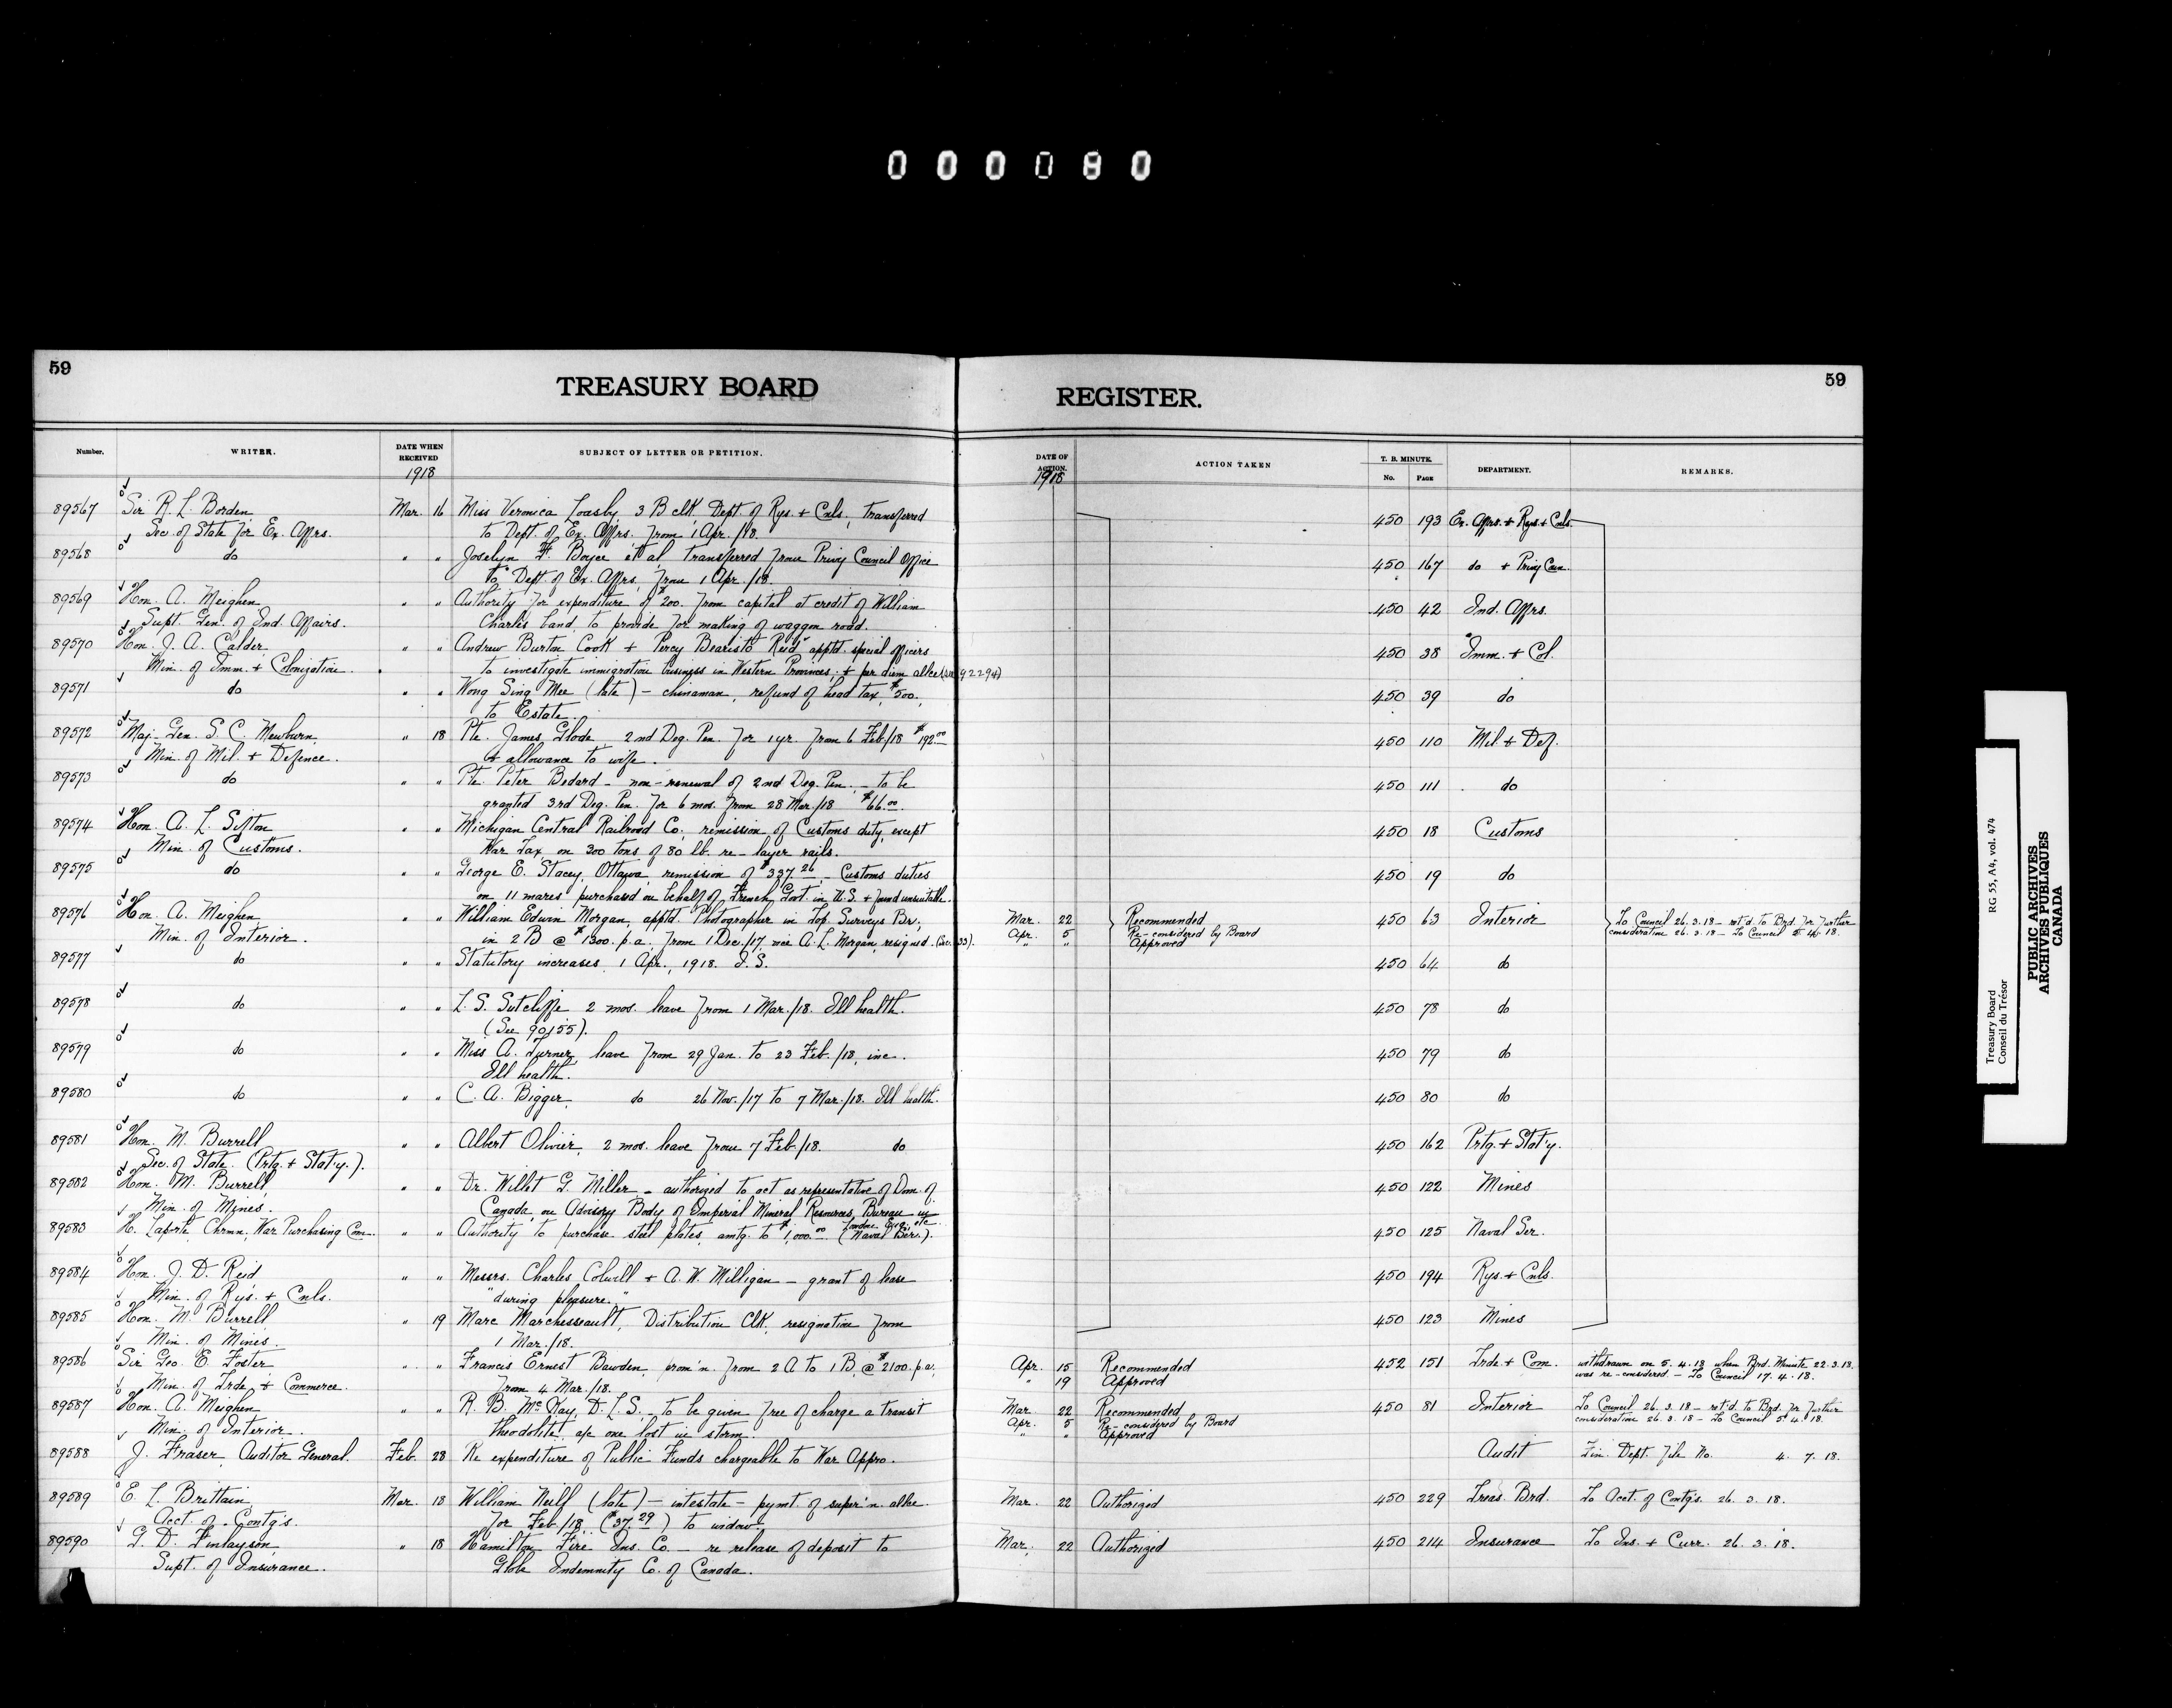 000080
59
TREASURY BOARD
Number.
WRITER.
DATE WHEN RECEIVED
1918
SUBJECT OF LETTER OR PETITION.
89567 Sir R. L. Borden Mar. 16 Miss Veronica Loasby 3 B clk Dept of Rys. + Cnls., transferred
Sec. of State for Ex. Affrs. to Dept. of Ex. Affrs. from 1 Apr./18.
89568 do " " Joselyn F. Boyce et al transferred from Privy Council Office
to Dept of Ex. Affrs. from 1 Apr./18.
89569 Hon. A. Meighen " " Authority for expenditure of $200. from capital at credit of William
Supt. Gen. of Ind. Affairs. Charles Land to provide for making of waggon road.
89570 Hon. J. A. Calder " " Andrew Burton Cook + Percy Bearisto Reid apptd. special officers
Min. of Imm. + Colonization. to investigate immigration business in Western Provinces. + per diem allce (see 92294)
89571 do " " Wong Sing Mee (late) - chinaman, refund of head tax, $500.,
to Estate.
89572 Maj-Gen. S. C. Mewburn " 18 Pte. James Glode 2nd Deg. Pen. for 1 yr. from 6 Feb/18 $192.00
Min. of Mil. + Defence. + allowance to wife.
89573 do " " Pte. Peter Bedard - non-renewal of 2nd Deg. Pen. - to be
granted 3rd Deg. Pen. for 6 mos. from 28 Mar/18 $66.00
89574 Hon. A. L. Sifton " " Michigan Central Railroad Co., remission of Customs duty, except
Min. of Customs. War Tax, on 300 tons of 80 lb. re-layer rails.
89575 do " " George E. Stacey, Ottawa, remission of $337.26 - Customs duties
on 11 mares purchased on behalf of French Govt. in U.S. + found unsuitable.
89576 Hon. A. Meighen " " William Edwin Morgan, apptd. Photographer in Top. Surveys Br.,
Min. of Interior. in 2 B @ $1300. p.a. from 1 Dec./17, vice A. L. Morgan, resigned.
89577 do " " Statutory increases, 1 Apr., 1918. I.S.
89578 do " " L. S. Sutcliffe 2 mos. leave from 1 Mar./18. Ill health.
(See 90155).
89579 do " " Miss A. Turner, leave from 29 Jan. to 23 Feb./18, inc.
Ill health.
89580 do " " C. A. Bigger, do 26 Nov./17 to 7 Mar./18. Ill health.
89581 Hon. M. Burrell " " Albert Olivier, 2 mos. leave from 7 Feb/18. do
Sec. of State. (Prtg. + Stat'y.).
89582 Hon. M. Burrell " " Dr. Willet G. Miller - authorized to act as representative of Dom. of
Min. of Mines. Canada on Advisory Body of Imperial Mineral Resources Bureau in
London Eng. etc.
89583 H. Laporte, Chrmn. War Purchasing Com. " " Authority to purchase steel plates, amtg. to $1,000.00 (Naval Ser.).
89584 Hon. J. D. Reid " " Messrs. Charles Colwill + A. W. Milligan - grant of lease
Min. of Rys. + Cnls. "during pleasure."
89585 Hon. M. Burrell " 19 Marc Marchesseault, Distribution Clk, resignation from
Min. of Mines. 1 Mar./18.
89586 Sir Geo. E. Foster " " Francis Ernest Bawden, prom'n. from 2 A to 1 B, @ $2100. p.a.,
Min. of Trde. + Commerce. from 4 Mar./18.
89587 Hon. A. Meighen " " R. B. McKay, D.L.S. - to be given free of charge a transit
Min. of Interior. theodolite, a/c one lost in storm.
89588 J. Fraser, Auditor General. Feb. 28 Re expenditure of Public Funds chargeable to War Appro.
89589 E. L. Brittain Mar. 18 William Neilf (late) - intestate - pymt. of super'n. allce
Acct. of Contg's. for Feb/18 ($37.29) to widow.
89590 G. D. Finlayson " 18 Hamilton Fire Ins. Co. - re release of deposit to
Supt. of Insurance. Globe Indemnity Co. of Canada.
59
REGISTER.
DATE OF ACTION.
1918
ACTION TAKEN
T. B. MINUTE.
No. PAGE
DEPARTMENT.
REMARKS.
450 193 Ex. Affrs. + Rys. + Cnls.
450 167 do + Privy Coun.
450 42 Ind. Affrs.
450 38 Imm. + Col.
450 39 do
450 110 Mil. + Def.
450 111 do
450 18 Customs
450 19 do
Mar. 22 Recommended 450 63 Interior To Council 26.3.18 - ret'd. to Brd. for further
Apr. 5 Re-considered by Board consideration 26.3.18 - To Council 5.4.18.
" " Approved
450 64 do
450 78 do
450 79 do
450 80 do
450 162 Prtg. + Stat'y.
450 122 Mines
450 125 Naval Ser.
450 194 Rys. + Cnls.
450 123 Mines
Apr. 15 Recommended 452 151 Trde. + Com. withdrawn on 5.4.18 when Brd. Minute 22.3.18.
" 19 Approved was re-considered. - To Council 17.4.18.
Mar. 22 Recommended 450 81 Interior To Council 26.3.18 - ret'd. to Brd. for further
Apr. 5 Re-considered by Board consideration 26.3.18 - To Council 5.4.18.
" " Approved
Audit Fin. Dept. File No. 4.7.18.
Mar. 22 Authorized 450 229 Treas. Brd. To Acct. of Contg's. 26.3.18.
Mar. 22 Authorized 450 214 Insurance To Ins. + Curr. 26.3.18.
Treasury Board
Conseil du Trésor
RG 55, A4, vol. 474
PUBLIC ARCHIVES
ARCHIVES PUBLIQUES
CANADA